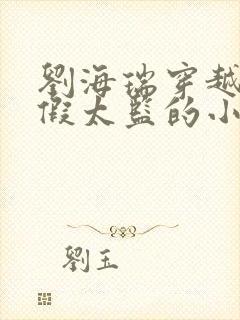 劉海瑞穿越
假太監的小
劉玉